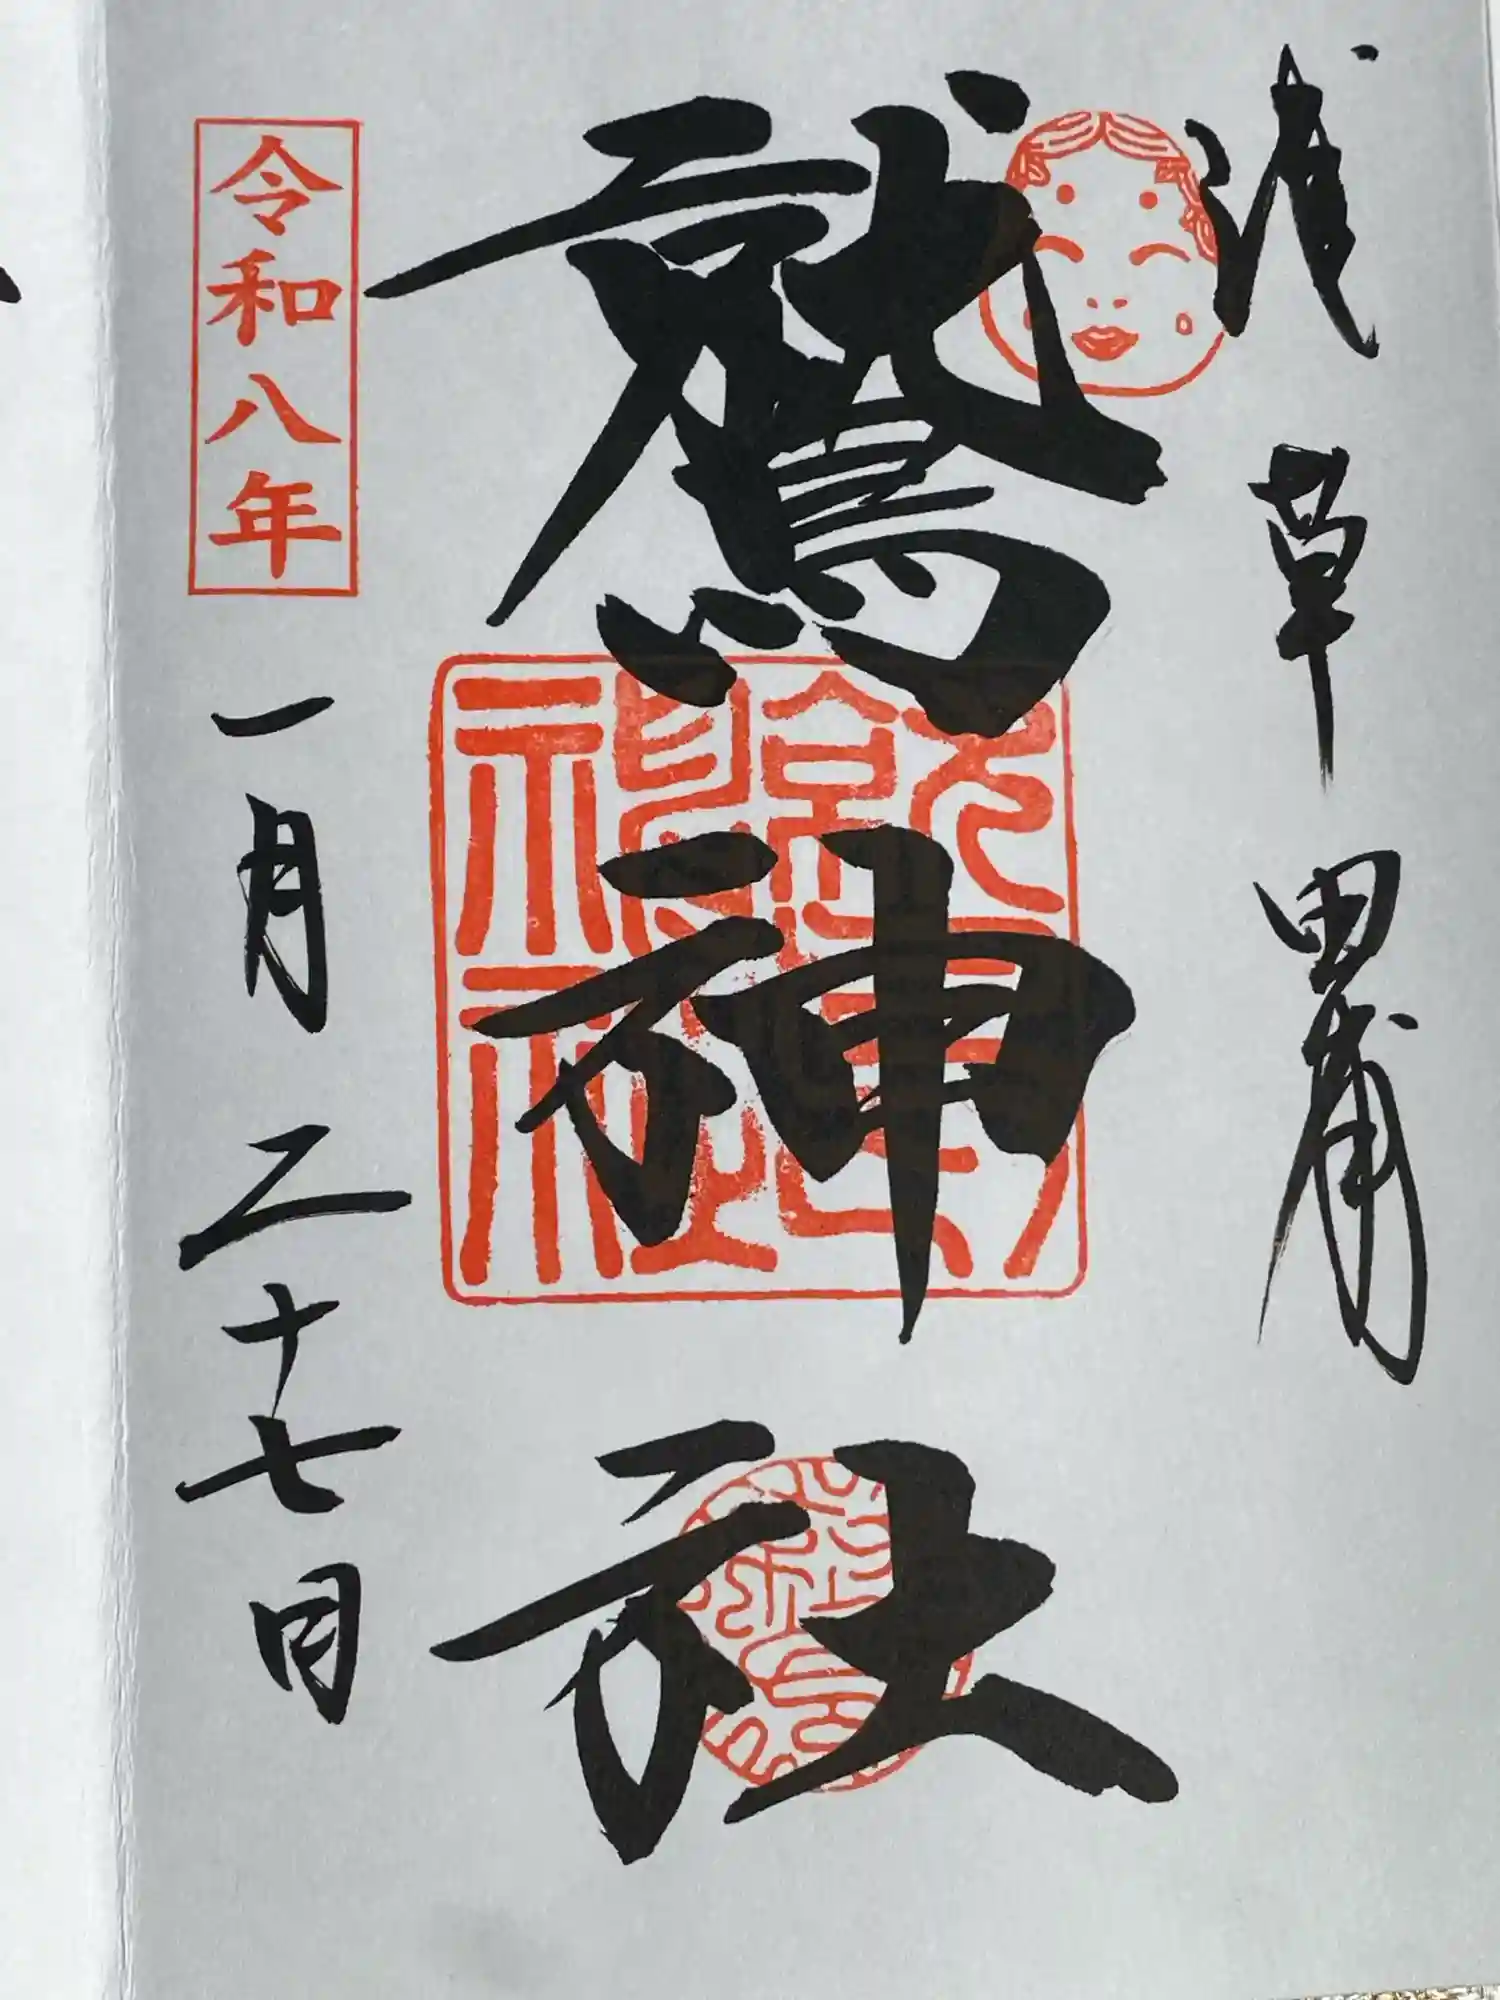 浅草田甫
鷲神社
令和八年
一月二十七日